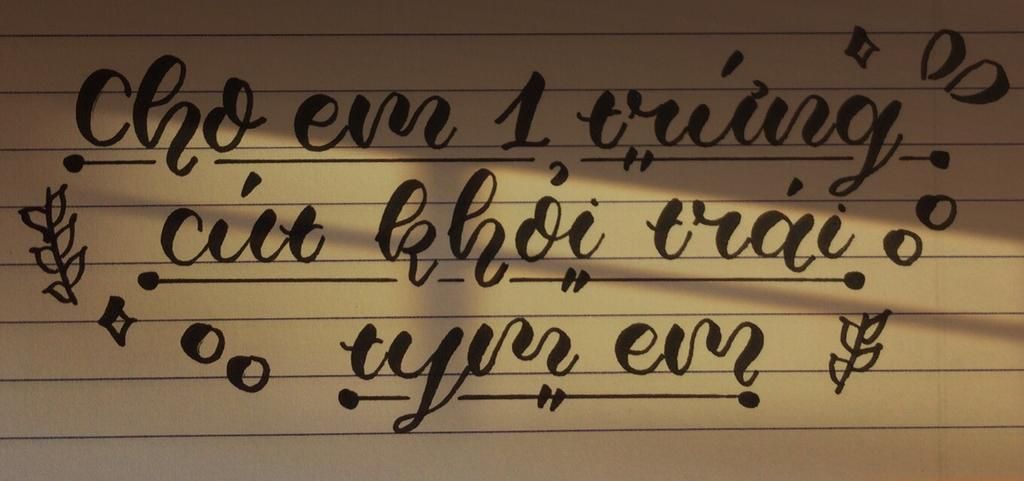 Cho em 1 trứng
cút khỏi trái
tym em